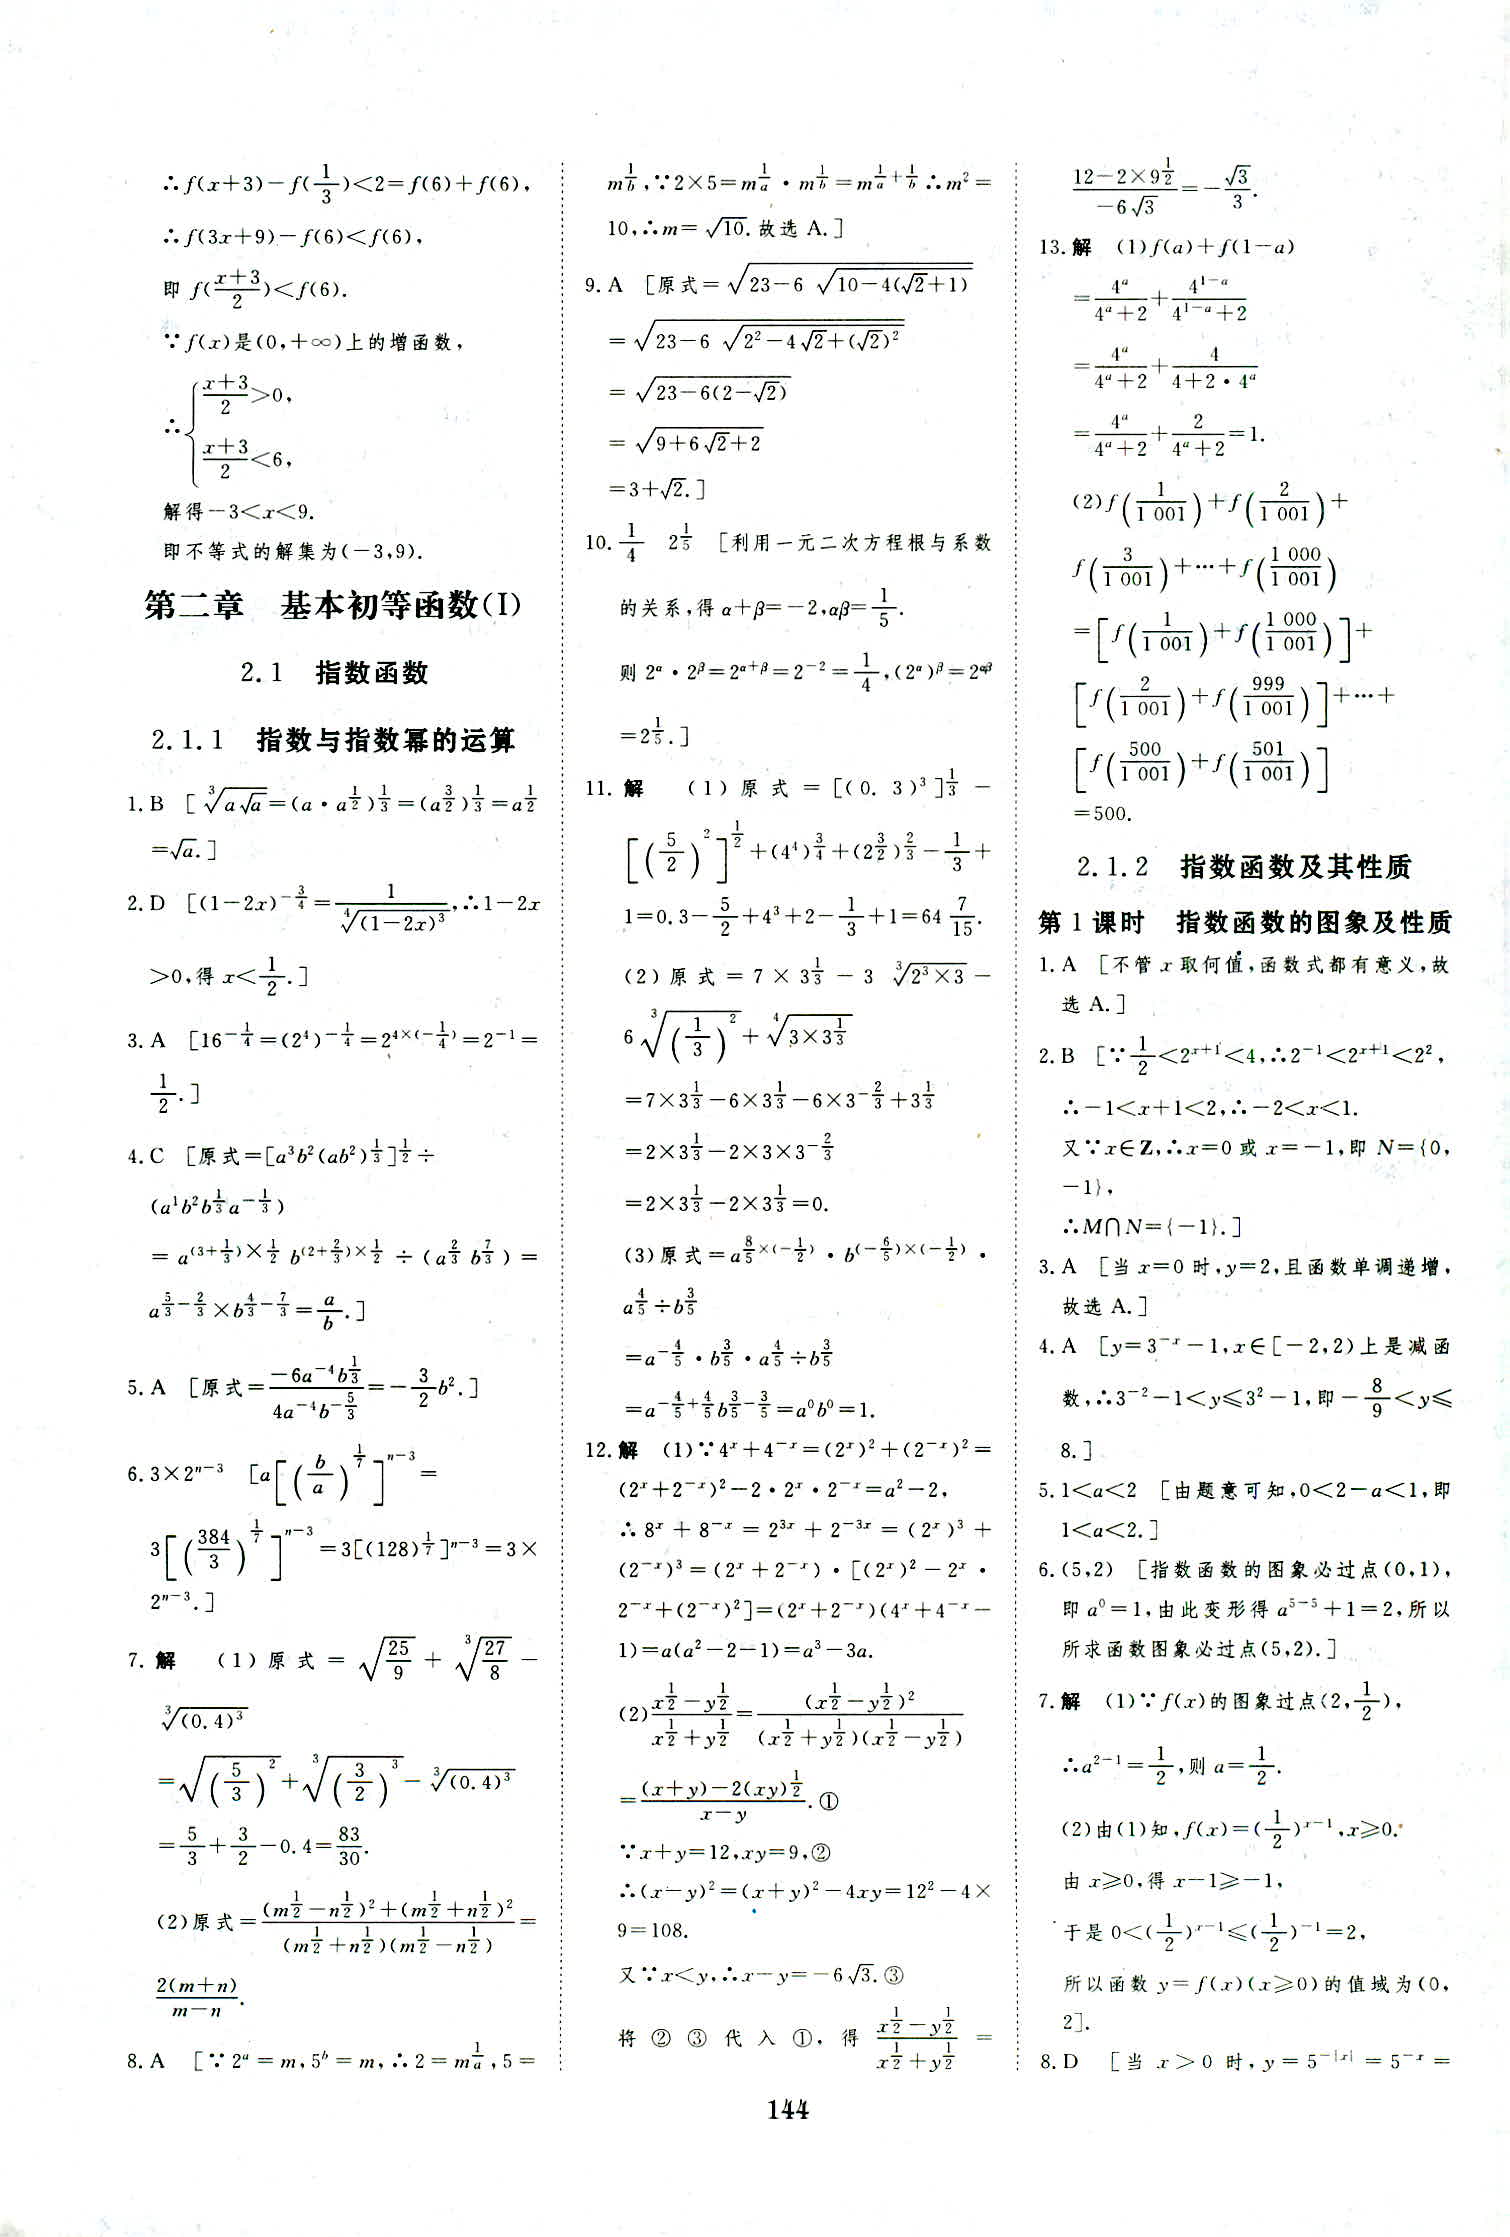 ∴f(x+3)-f(1/3)<2=f(6)+f(6),
∴f(3x+9)-f(6)<f(6),
即 f((x+3)/2)<f(6).
∵f(x)是(0,+∞)上的增函数,
∴{(x+3)/2>0,
(x+3)/2<6,
解得-3<x<9.
即不等式的解集为(-3,9).
第二章 基本初等函数(I)
2.1 指数函数
2.1.1 指数与指数幂的运算
1.B [∛(a√a)=(a·a^(1/2))^(1/3)=(a^(3/2))^(1/3)=a^(1/2)
=√a.]
2.D [(1-2x)^(-3/4)=1/∜((1-2x)^3),∴1-2x
>0,得 x<1/2.]
3.A [16^(-1/4)=(2^4)^(-1/4)=2^(4×(-1/4))=2^(-1)=
1/2.]
4.C [原式=[a^3b^2(ab^2)^(1/3)]^(1/2)÷
(a^1b^2b^(1/3)a^(-1/3))
=a^((3+1/3)×1/2) b^((2+2/3)×1/2)÷(a^(2/3) b^(7/3))=
a^(5/3-2/3)×b^(4/3-7/3)=a/b.]
5.A [原式=(-6a^(-4)b^(1/3))/(4a^(-4)b^(-5/3))=-3/2 b^2.]
6.3×2^(n-3) [a[(b/a)^(1/7)]^(n-3)=
3[(384/3)^(1/7)]^(n-3)=3[(128)^(1/7)]^(n-3)=3×
2^(n-3).]
7. 解 (1)原式=√(25/9)+∛(27/8)-
∛((0.4)^3)
=√((5/3)^2)+∛((3/2)^3)-∛((0.4)^3)
=5/3+3/2-0.4=83/30.
(2)原式=((m^(1/2)-n^(1/2))^2+(m^(1/2)+n^(1/2))^2)/((m^(1/2)+n^(1/2))(m^(1/2)-n^(1/2)))=
2(m+n)/(m-n).
8.A [∵2^a=m,5^b=m,∴2=m^(1/a),5=
m^(1/b),∵2×5=m^(1/a)·m^(1/b)=m^(1/a+1/b)∴m^2=
10,∴m=√10.故选 A.]
9.A [原式=√(23-6√(10-4(√2+1)))
=√(23-6√(2^2-4√2+(√2)^2))
=√(23-6(2-√2))
=√(9+6√2+2)
=3+√2.]
10.1/4 2^(1/5) [利用一元二次方程根与系数
的关系,得 α+β=-2,αβ=1/5.
则 2^α·2^β=2^(α+β)=2^(-2)=1/4,(2^α)^β=2^(αβ)
=2^(1/5).]
11. 解 (1)原式=[(0.3)^3]^(1/3)-
[(5/2)^2]^(1/2)+(4^4)^(3/4)+(2^(3/2))^(2/3)-1/3+
1=0.3-5/2+4^3+2-1/3+1=64 7/15.
(2)原式=7×3^(1/3)-3∛(2^3×3)-
6∛((1/3)^2)+∜(3×3^(1/3))
=7×3^(1/3)-6×3^(1/3)-6×3^(-2/3)+3^(1/3)
=2×3^(1/3)-2×3×3^(-2/3)
=2×3^(1/3)-2×3^(1/3)=0.
(3)原式=a^(8/5×(-1/2))·b^((-6/5)×(-1/2))·
a^(4/5)÷b^(3/5)
=a^(-4/5)·b^(3/5)·a^(4/5)÷b^(3/5)
=a^(-4/5+4/5)b^(3/5-3/5)=a^0b^0=1.
12.解 (1)∵4^x+4^(-x)=(2^x)^2+(2^(-x))^2=
(2^x+2^(-x))^2-2·2^x·2^(-x)=a^2-2,
∴8^x+8^(-x)=2^(3x)+2^(-3x)=(2^x)^3+
(2^(-x))^3=(2^x+2^(-x))·[(2^x)^2-2^x·
2^(-x)+(2^(-x))^2]=(2^x+2^(-x))(4^x+4^(-x)-
1)=a(a^2-2-1)=a^3-3a.
(2)(x^(1/2)-y^(1/2))/(x^(1/2)+y^(1/2))=(x^(1/2)-y^(1/2))^2/((x^(1/2)+y^(1/2))(x^(1/2)-y^(1/2)))
=((x+y)-2(xy)^(1/2))/(x-y).①
∵x+y=12,xy=9,②
∴(x-y)^2=(x+y)^2-4xy=12^2-4×
9=108.
又∵x<y,∴x-y=-6√3.③
将②③代入①,得(x^(1/2)-y^(1/2))/(x^(1/2)+y^(1/2))=
(12-2×9^(1/2))/(-6√3)=-√3/3.
13.解 (1)f(a)+f(1-a)
=4^a/(4^a+2)+4^(1-a)/(4^(1-a)+2)
=4^a/(4^a+2)+4/(4+2·4^a)
=4^a/(4^a+2)+2/(4^a+2)=1.
(2)f(1/1 001)+f(2/1 001)+
f(3/1 001)+…+f(1 000/1 001)
=[f(1/1 001)+f(1 000/1 001)]+
[f(2/1 001)+f(999/1 001)]+…+
[f(500/1 001)+f(501/1 001)]
=500.
2.1.2 指数函数及其性质
第 1 课时 指数函数的图象及性质
1.A [不管 x 取何值,函数式都有意义,故
选 A.]
2.B [∵1/2<2^(x+1)<4,∴2^(-1)<2^(x+1)<2^2,
∴-1<x+1<2,∴-2<x<1.
又∵x∈Z,∴x=0 或 x=-1,即 N={0,
-1},
∴M∩N={-1}.]
3.A [当 x=0 时,y=2,且函数单调递增,
故选 A.]
4.A [y=3^(-x)-1,x∈[-2,2)上是减函
数,∴3^(-2)-1<y≤3^2-1,即-8/9<y≤
8.]
5.1<a<2 [由题意可知,0<2-a<1,即
1<a<2.]
6.(5,2) [指数函数的图象必过点(0,1),
即 a^0=1,由此变形得 a^(5-5)+1=2,所以
所求函数图象必过点(5,2).]
7.解 (1)∵f(x)的图象过点(2,1/2),
∴a^(2-1)=1/2,则 a=1/2.
(2)由(1)知,f(x)=(1/2)^(x-1),x≥0.
由 x≥0,得 x-1≥-1,
于是 0<(1/2)^(x-1)≤(1/2)^(-1)=2,
所以函数 y=f(x)(x≥0)的值域为(0,
2].
8.D [当 x>0 时,y=5^(-|x|)=5^(-x)=
144